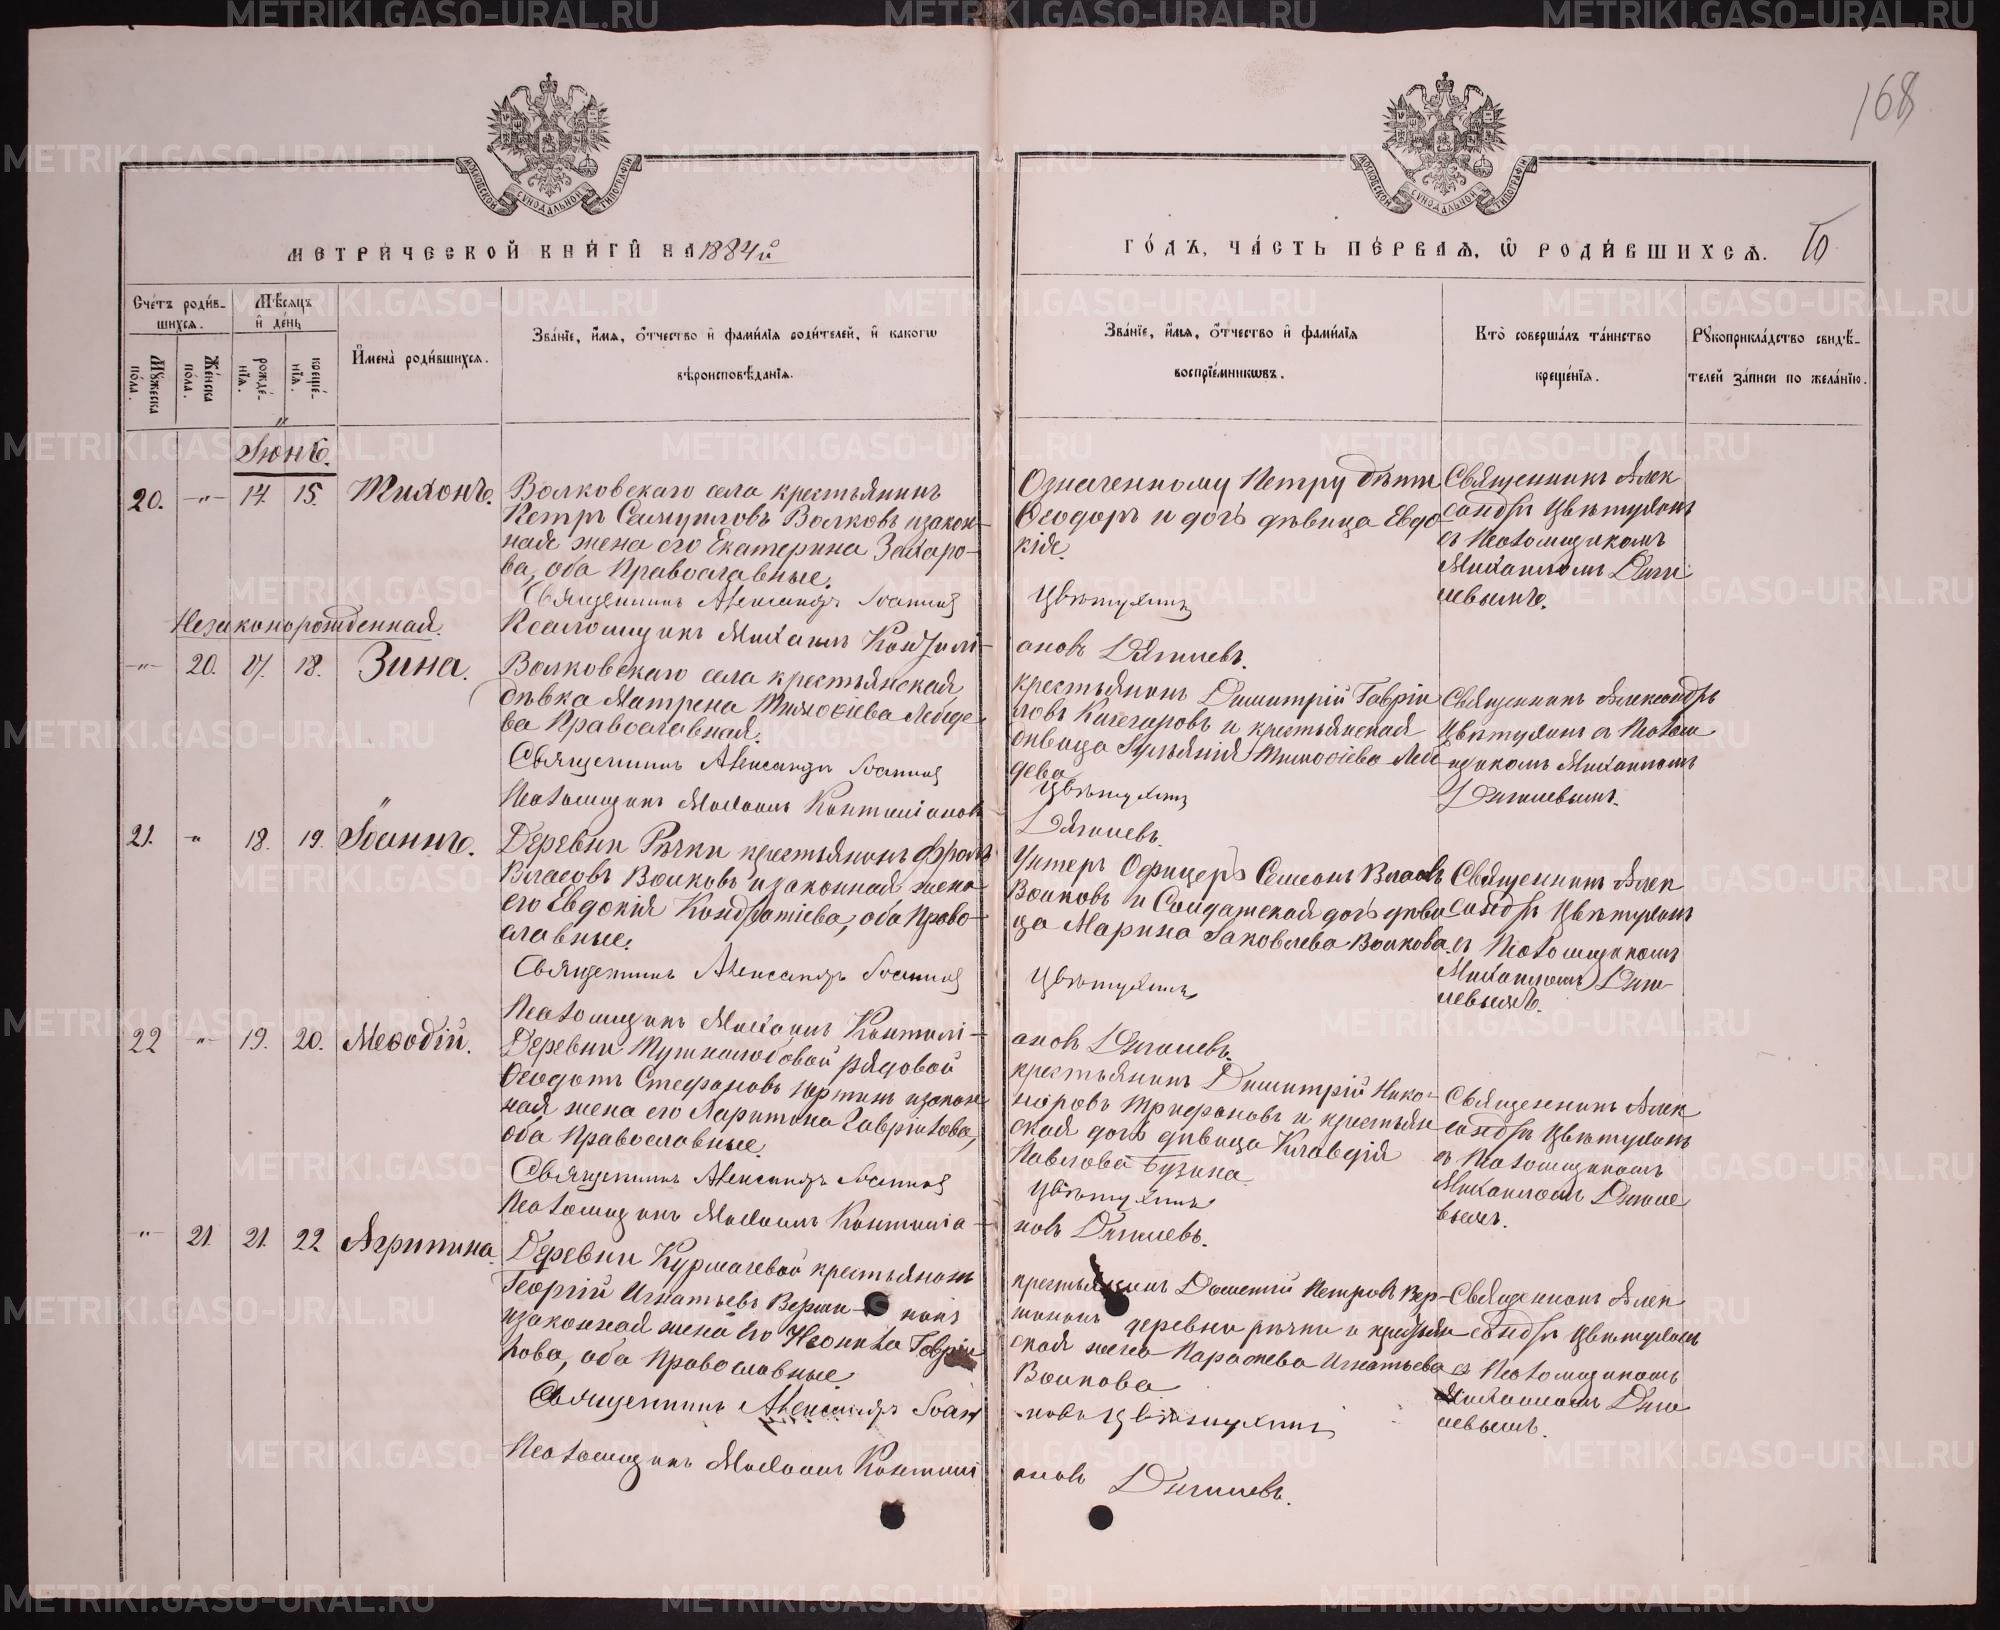 168
МОСКОВСКОЙ СѴНОДАЛЬНОЙ ТИПОГРАФІИ
МОСКОВСКОЙ СѴНОДАЛЬНОЙ ТИПОГРАФІИ
МЕТРИ́ЧЕСКОЙ КНИ́ГИ НА 1884й
ГО́ДЪ, ЧА́СТЬ ПЕ́РВАЯ, Ѡ РОДИ́ВШИХСЯ.
Сче́тъ роди́в-
шихся.
Мѣ́сяцъ
и де́нь
Мꙋ́жеска
по́ла.
Же́нска
по́ла.
рожде́-
нїя.
креще́-
нїя.
Имена̀ роди́вшихся.
Зва́нїе, и́мя, о́тчество и фами́лїя роди́телей, и како́гѡ
вѣроисповѣ́данїя.
Зва́нїе, и́мя, о́тчество и фами́лїя
воспрїе́мникѡвъ.
Кто̀ соверша́лъ та́инство
креще́нїя.
Рꙋкоприкла́дство свидѣ́-
телей за́писи по жела́нїю.
Іюнь.
20. -"- 14. 15. Тихонъ.
Волковскаго села крестьянинъ
Петръ Самуиловъ Волковъ и закон-
ная жена его Екатерина Захаро-
ва, оба Православные.
Священникъ Александръ Іоанновъ
Псаломщикъ Михаилъ Кантиді-
Означенному Петру дѣти
Ѳеодоръ и дочь дѣвица Евдо-
кія.
Цвѣтухинъ
ановъ Дягилевъ.
Священникъ Алек
сандръ Цвѣтухинъ
съ Псаломщикомъ
Михаиломъ Дяги
левымъ.
Незаконорожденная.
-"- 20. 17. 18. Зина.
Волковскаго села крестьянская
дѣвка Матрена Тимоѳіева Лебеде-
ва Православная.
Священникъ Александръ Іоанновъ
Псаломщикъ Михаилъ
крестьянинъ Димитрій Гаврии
ловъ Кочегаровъ и крестьянская
дѣвица Іуліанія Тимоѳіева Лебе-
дева
Цвѣтухинъ
Дягилевъ.
Священникъ Александръ
Цвѣтухинъ съ Псалом
щикомъ Михаиломъ
Дягилевымъ.
21. -"- 18. 19. Іоаннъ.
Деревни Рѣчки крестьянинъ Фролъ
Власовъ Волковъ и законная жена
его Евдокія Кондратіева, оба Право-
славные.
Священникъ Александръ Іоанновъ
Псаломщикъ Михаилъ
Унтеръ Офицеръ Семенъ Власовъ
Волковъ и Солдатская дочь дѣви
ца Марина Іаковлева Волкова.
Цвѣтухинъ
ановъ Дягилевъ.
Священникъ Алек
сандръ Цвѣтухинъ
съ Псаломщикомъ
Михаиломъ Дяги-
левымъ.
22 -"- 19. 20. Меѳодій.
Деревни рядовой
Ѳеодотъ Стефановъ и закон
ная жена его Харитина Гавріилова,
оба Православные.
Священникъ Александръ Іоанновъ
Псаломщикъ Михаилъ
крестьянинъ Димитрій Нико-
норовъ Трифановъ и крестьян
ская дочь дѣвица Клавдія
Павлова Бузина
Цвѣтухинъ
новъ Дягилевъ.
Священникъ Алек
сандръ Цвѣтухинъ
съ Псаломщикомъ
Михаиломъ Дягиле
вымъ.
-"- 21. 21. 22. Агрипина.
Деревни Курмачевой крестьянинъ
Георгій Игнатьевъ Верши- нинъ
и законная жена его Гаврии
лова, оба Православные
Священникъ Александръ Іоан
Псаломщикъ Михаилъ
крестьянинъ Петровъ Вер-
шининъ деревни рѣчки и крестьян
ская жена Параскева Игнатьева
Волкова
новъ Цвѣтухинъ
ановъ Дягилевъ.
Священникъ Алек
сандръ Цвѣтухинъ
съ Псаломщикомъ
Михаиломъ Дяги
левымъ.
METRIKI.GASO-URAL.RU